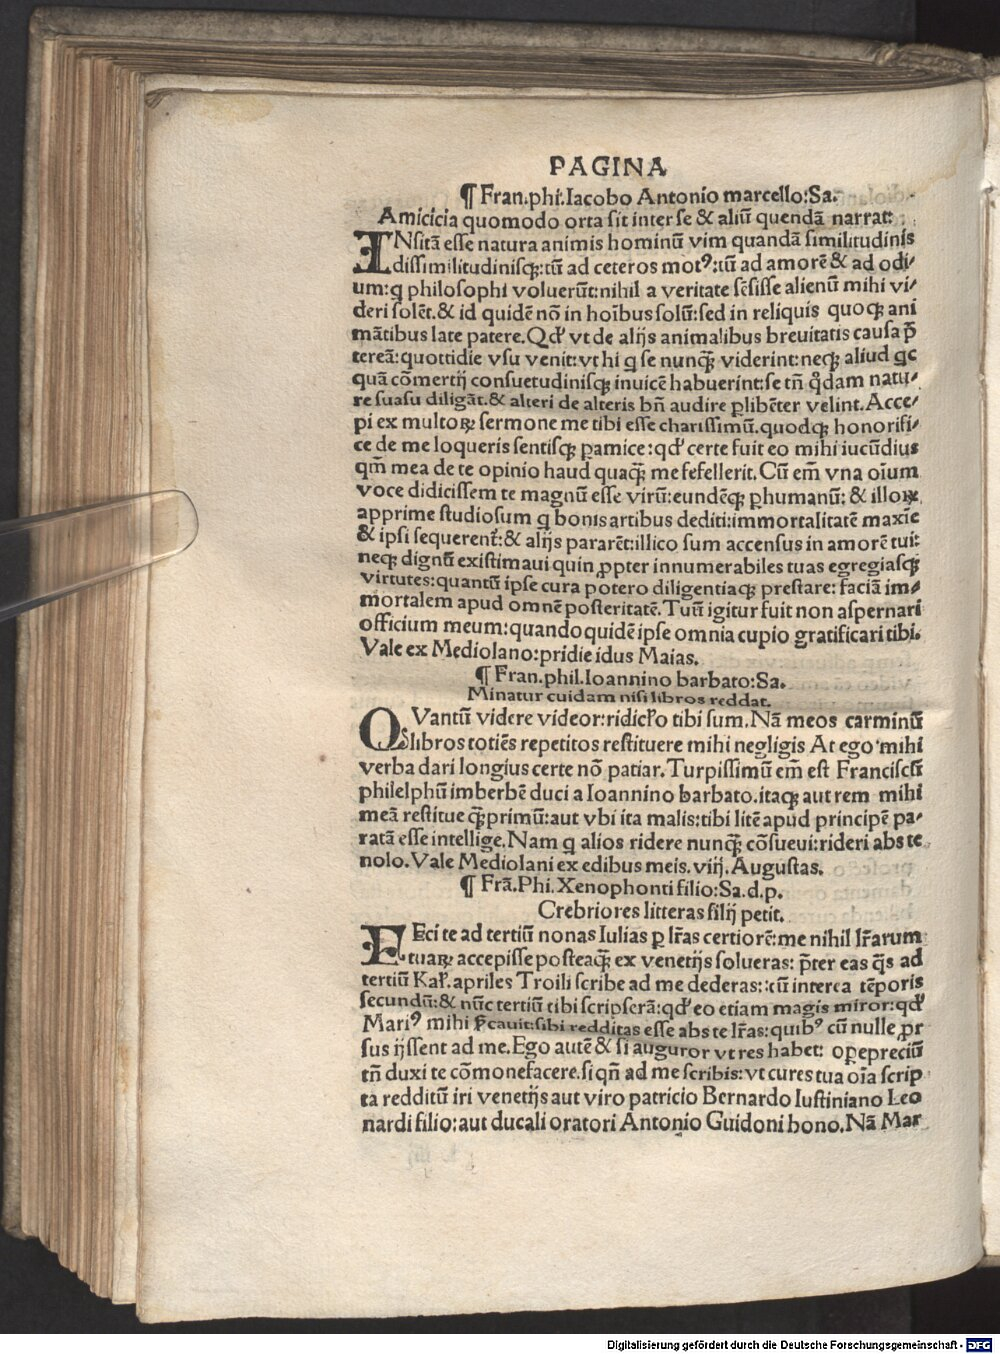 PAGINA
¶ Fran.phi.Iacobo Antonio marcello:Sa.
Amicicia quomodo orta sit inter se & aliū quendā narrat:
INsitā esse natura animis hominū vim quandā similitudinis
dissimilitudinisq;:tū ad ceteros motꝰ:tū ad amorē & ad odi/
um:q philosophi voluerūt:nihil a veritate sēsisse alienū mihi vi/
deri solēt.& id quidē nō in hoibus solū:sed in reliquis quoq; ani
mātibus late patere.Qđ vt de alijs animalibus breuitatis causa p̄
tereā:quottidie vsu venit:vt hi q se nunq̄; viderint:neq; aliud qc
quā cōmertij consuetudinisq; inuicē habuerint:se tn̄ q̄dam natu/
re suasu diligāt.& alteri de alteris bn̄ audire ꝑlibēter velint.Acce/
pi ex multoꝝ sermone me tibi esse charissimū.quodq; honorifi/
ce de me loqueris sentisq; ꝑamice:qđ certe fuit eo mihi iucūdius
qm̄ mea de te opinio haud quaq̄; me fefellerit.Cū em̄ vna oīum
voce didicissem te magnū esse virū:eundēq; ꝑhumanū: & illoꝝ
apprime studiosum q bonis artibus dediti:immortalitatē maxīe
& ipsi sequerent̄:& alijs pararēt:illico sum accensus in amorē tui:
neq; dignū existimaui quin ꝓpter innumerabiles tuas egregiasq;
virtutes:quantū ipse cura potero diligentiaq; prestare: faciā im/
mortalem apud omnē posteritatē.Tuū igitur fuit non aspernari
officium meum:quando quidē ipse omnia cupio gratificari tibi.
Vale ex Mediolano:pridie idus Maias.
¶ Fran.phil.Ioannino barbato:Sa.
Minatur cuidam nisi libros reddat.
QVantū videre videor:ridicl̓o tibi sum.Nā meos carminū
libros totiēs repetitos restituere mihi negligis At ego mihi
verba dari longius certe nō patiar.Turpissimū em̄ est Franciscū
philelphū imberbē duci a Ioannino barbato.itaq; aut rem mihi
meā restitue q̄;primū:aut vbi ita malis:tibi litē apud principē pa/
ratā esse intellige.Nam q alios ridere nunq̄; cōsueui:rideri abs te
nolo.Vale Mediolani ex edibus meis.viij.Augustas.
¶ Frā.Phi.Xenophonti filio:Sa.d.p.
Crebriores litteras filij petit.
FEci te ad tertiū nonas Iulias ꝑ lr̄as certiorē:me nihil lr̄arum
tuaꝝ accepisse posteaq̄; ex venetijs solueras: p̄ter eas q̄s ad
tertiū Kal̓.apriles Troili scribe ad me dederas:cū interea tēporis
secundū:& nūc tertiū tibi scripserā:qđ eo etiam magis miror:qđ
Mariꝰ mihi p̄cauit:sibi redditas esse abs te lr̄as:quibꝰ cū nulle ꝓr
sus ijssent ad me.Ego autē & si auguror vt res habet: opepreciū
tn̄ duxi te cōmonefacere.si qn̄ ad me scribis:vt cures tua oīa scrip
ta redditū iri venetijs aut viro patricio Bernardo Iustiniano Leo
nardi filio:aut ducali oratori Antonio Guidoni bono.Nā Mar
Digitalisierung gefördert durch die Deutsche Forschungsgemeinschaft - DFG